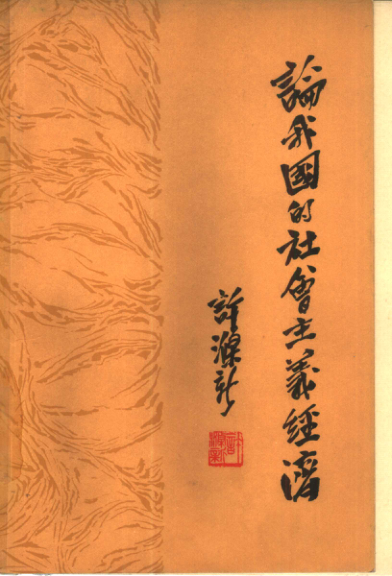 論我國的社會主義經濟
許滌新